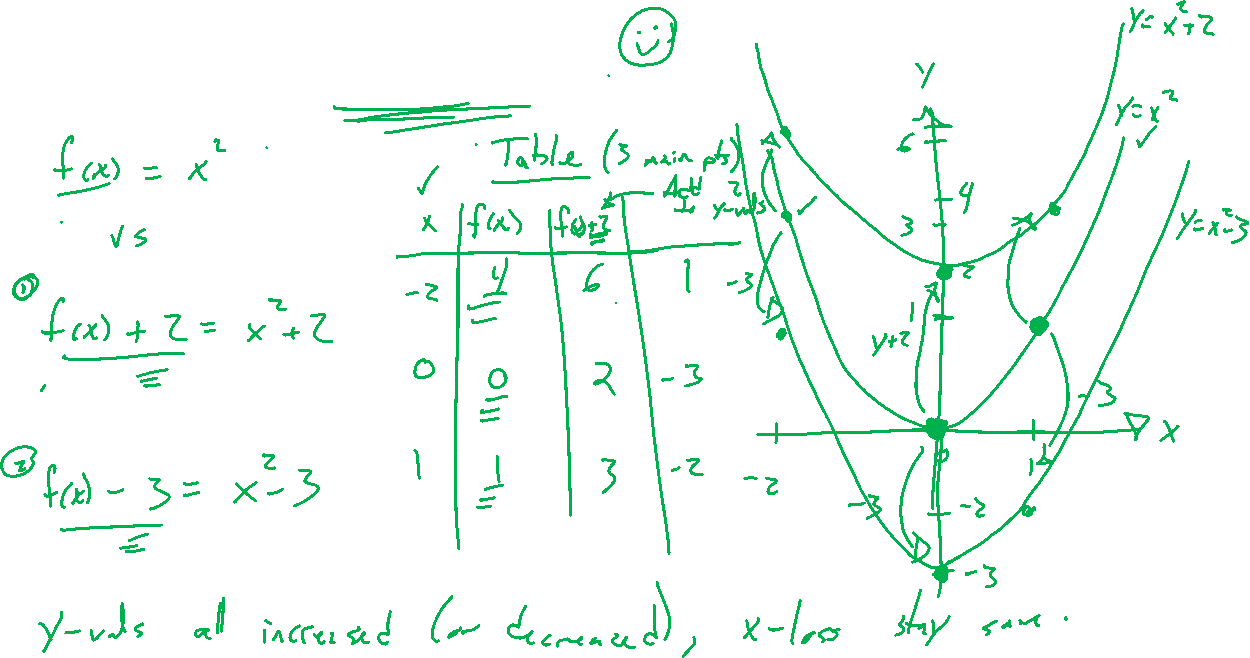 f(x) = x²
vs
① f(x) + 2 = x² + 2
② f(x) - 3 = x² - 3
Table (3 main pts)
Add 2 to y-vals
x f(x) f(x)+2
-2 4 6 1
0 0 2 -3
1 1 3 -2
-3
y = x² + 2
y = x²
y = x² - 3
Y
6
4
3
2
1
y+2
-3
X
-2
0
1
-3
-2
-3
y-vals all increased (or decreased), x-locs stay same.